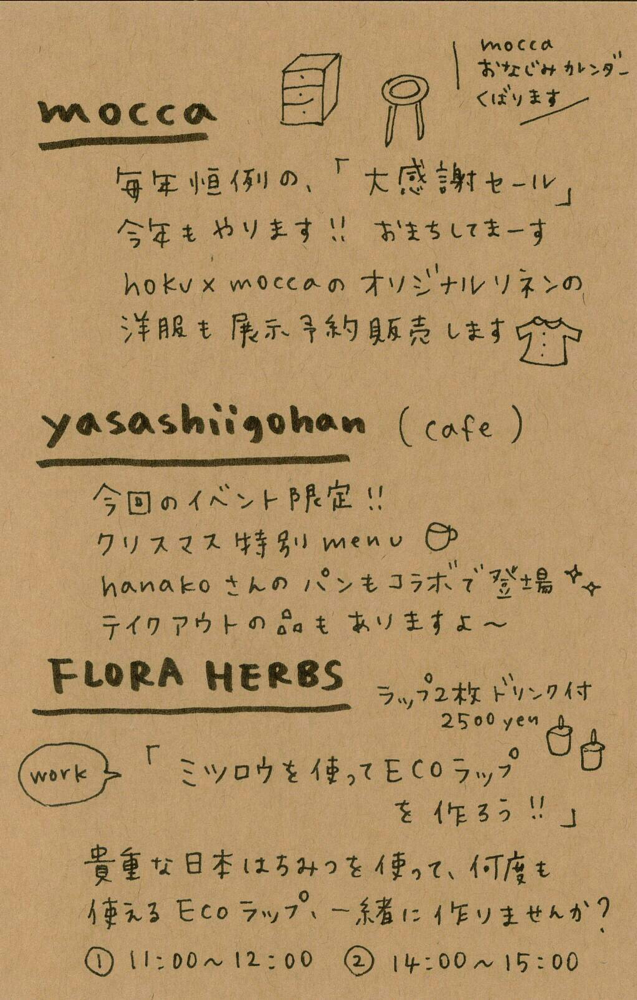 mocca
おなじみカレンダー
くばります
mocca
毎年恒例の、「大感謝セール」
今年もやります!! おまちしてまーす
hoku×moccaのオリジナルリネンの
洋服も展示予約販売します
yasashiigohan (cafe)
今回のイベント限定!!
クリスマス特別menu
hanakoさんのパンもコラボで登場
テイクアウトの品もありますよ～
FLORA HERBS
ラップ2枚ドリンク付
2500yen
work
「ミツロウを使ってECOラップ
を作ろう!!」
貴重な日本はちみつを使って、何度も
使えるECOラップ、一緒に作りませんか?
① 11:00～12:00 ② 14:00～15:00